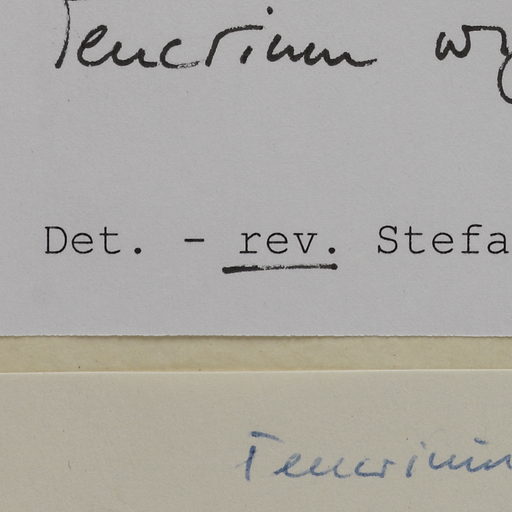 Teucrium
Det. - rev. Stefa
Teucrium